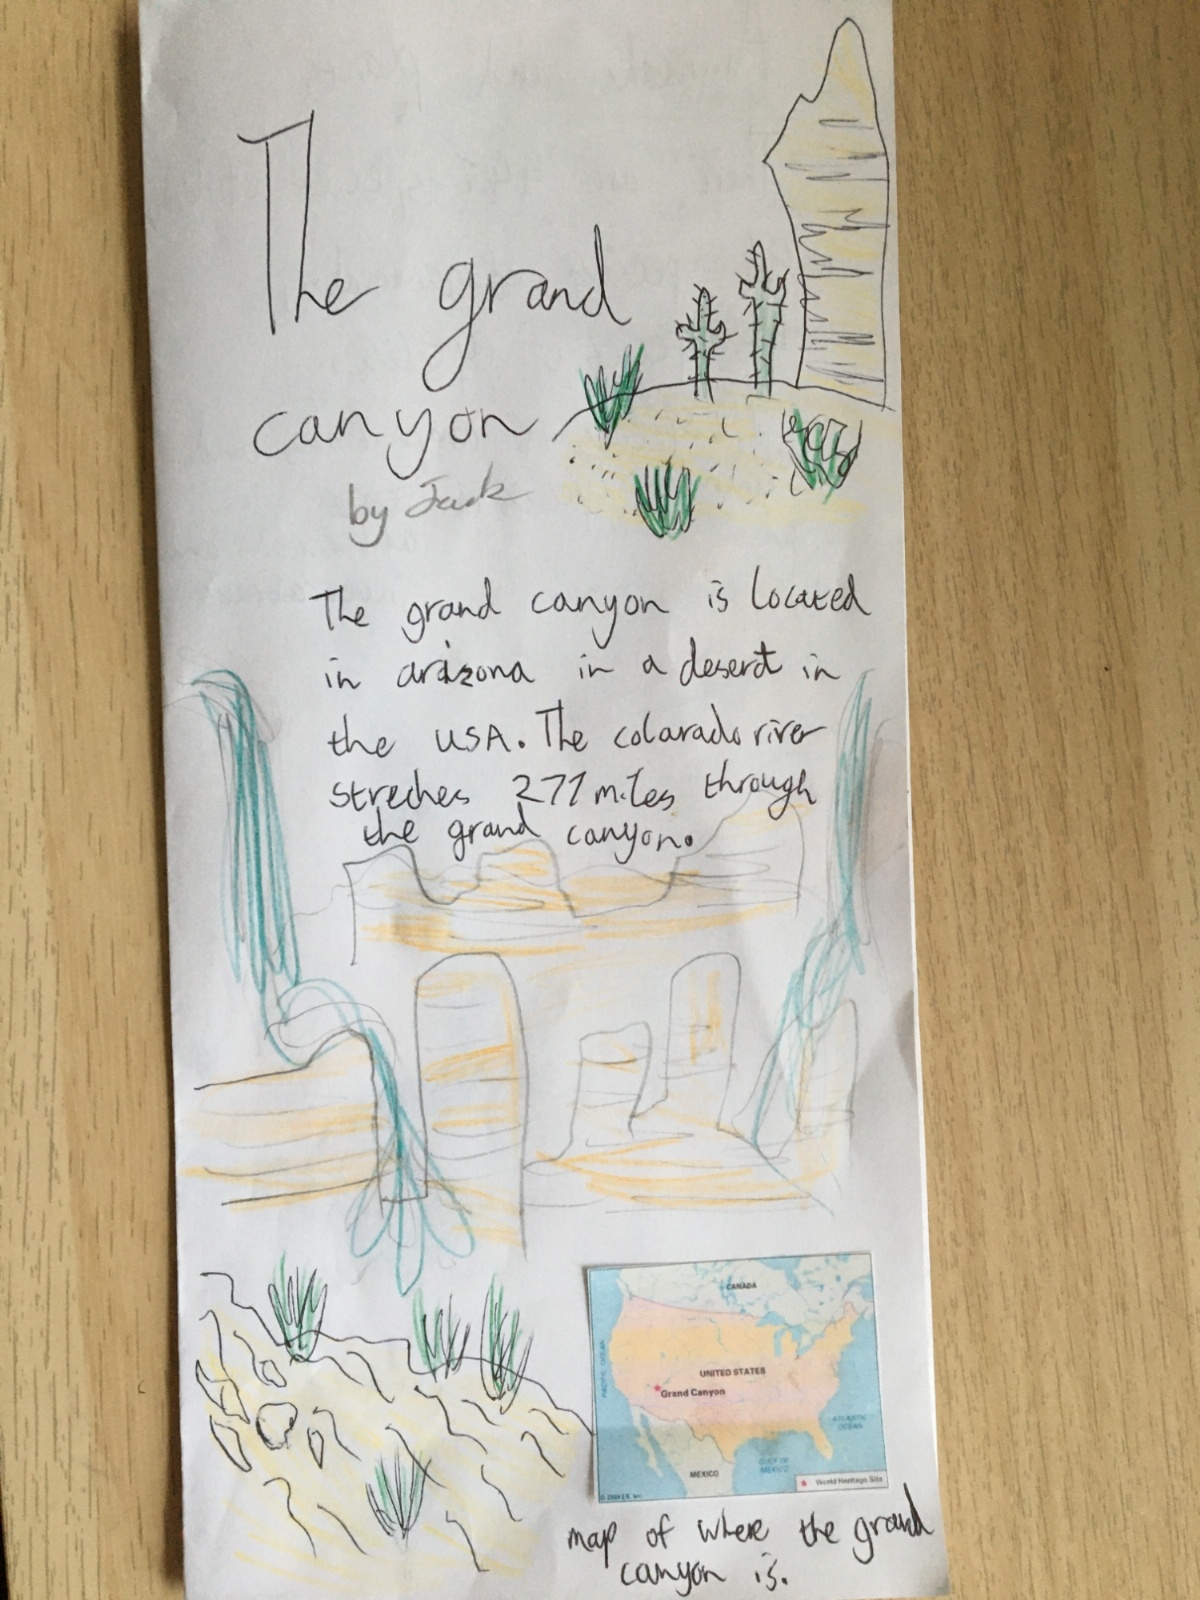 The grand
canyon
by Jack
The grand canyon is located
in arizona in a desert in
the USA. The colarado river
streches 277 miles through
the grand canyon.
CANADA
PACIFIC OCEAN
UNITED STATES
Grand Canyon
ATLANTIC
OCEAN
GULF OF
MEXICO
MEXICO
World Heritage Site
map of where the grand
canyon is.